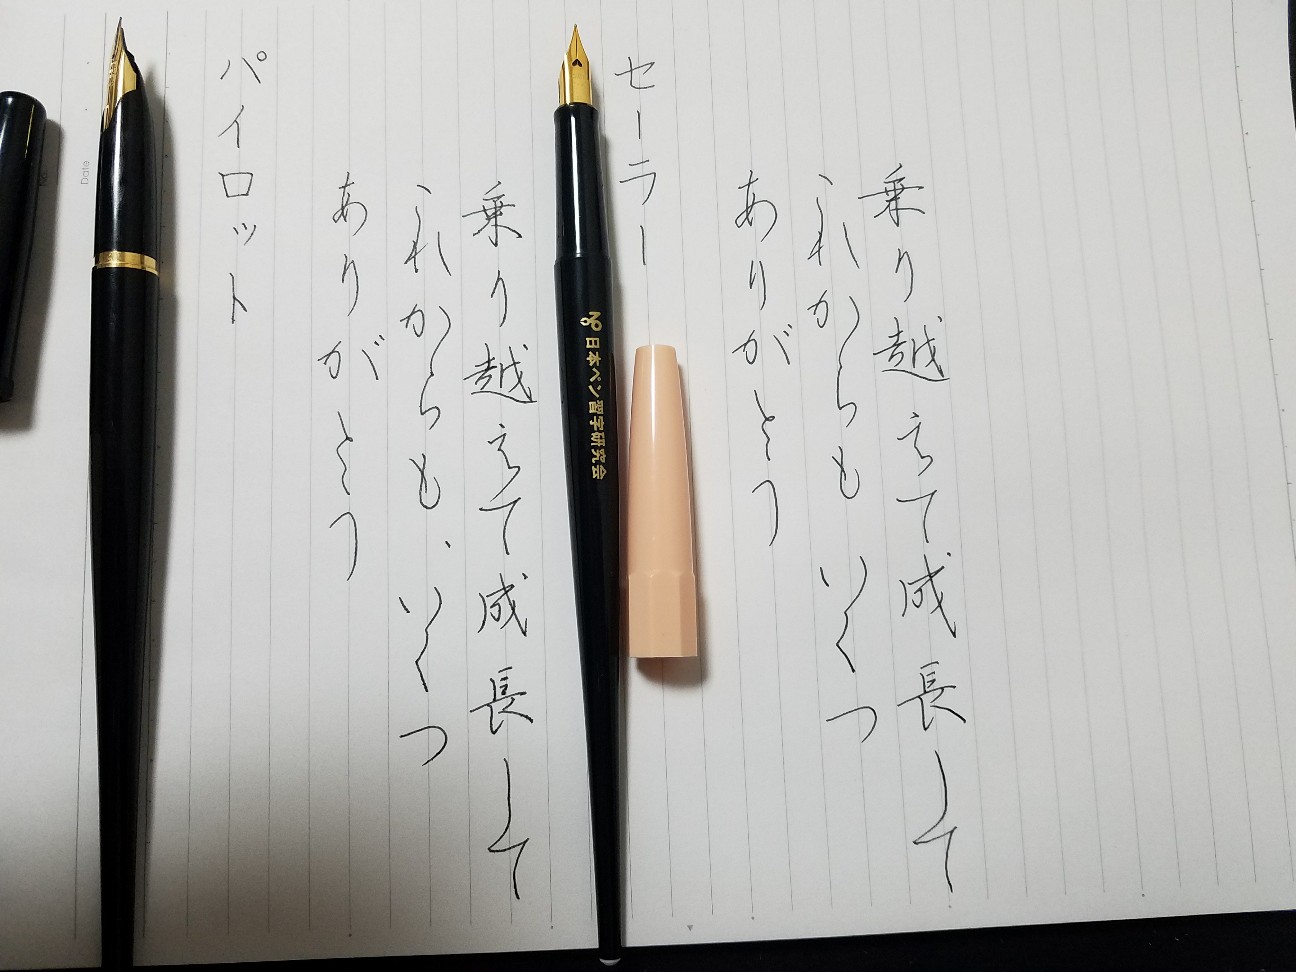 セーラー
乗り越えて成長して
これからもいくつ
ありがとう
日本ペン習字研究会
パイロット
乗り越えて成長して
これからも、いくつ
ありがとう
Date